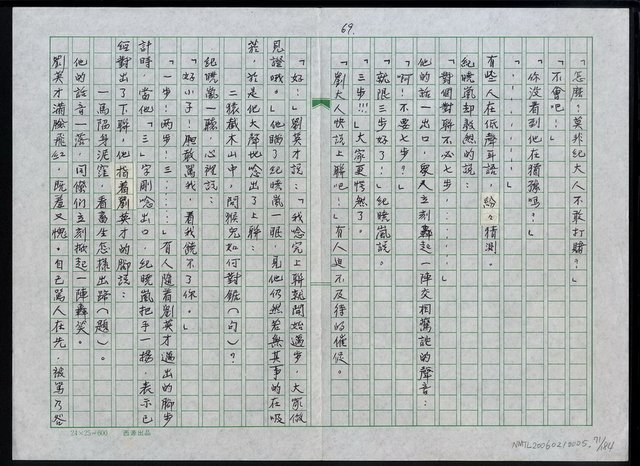 69.
「怎麼？莫非紀大人不敢打賭？」
「不會吧！」
「你沒看到他在猶豫嗎？」
「．．．．．．」
有些人在低聲耳語，紛々猜測。
紀曉嵐卻毅然的說：
「對個對聯不必七步，．．．．．．」
他的話一出口，眾人立刻轟起一陣交相驚詫的聲音：
「啊！不要七步？」
「就限三步好了！」紀曉嵐說。
「三步!!!」大家更愕然了。
「劉大人快說上聯吧！」有人迫不及待的催促。
「好！」劉英才說：「我唸完上聯就開始邁步，大家做
見證哦。」他瞄了紀曉嵐一眼，見他仍然若無其事的在吸
菸，於是他大聲地唸出了上聯：
二猿截木山中，問猴兒如何對鋸（句）？
紀曉嵐一聽，心裡說：
「好小子！胆敢罵我，看我饒不了你。」
「一步！兩步！三……」有人隨着劉英才邁出的腳步
計時，當他「三」字剛唸出口，紀曉嵐把手一揚，表示已
經對出了下聯，他指着劉英才的腳說：
一馬陷身泥窪，看畜生怎樣出蹄（題）。
他的話音一落，同僚們立刻掀起一陣轟笑。
劉英才滿臉飛紅，既羞又愧。自己罵人在先，被罵乃咎
24×25=600 西湖出品
NMTL20060210005. 71/184